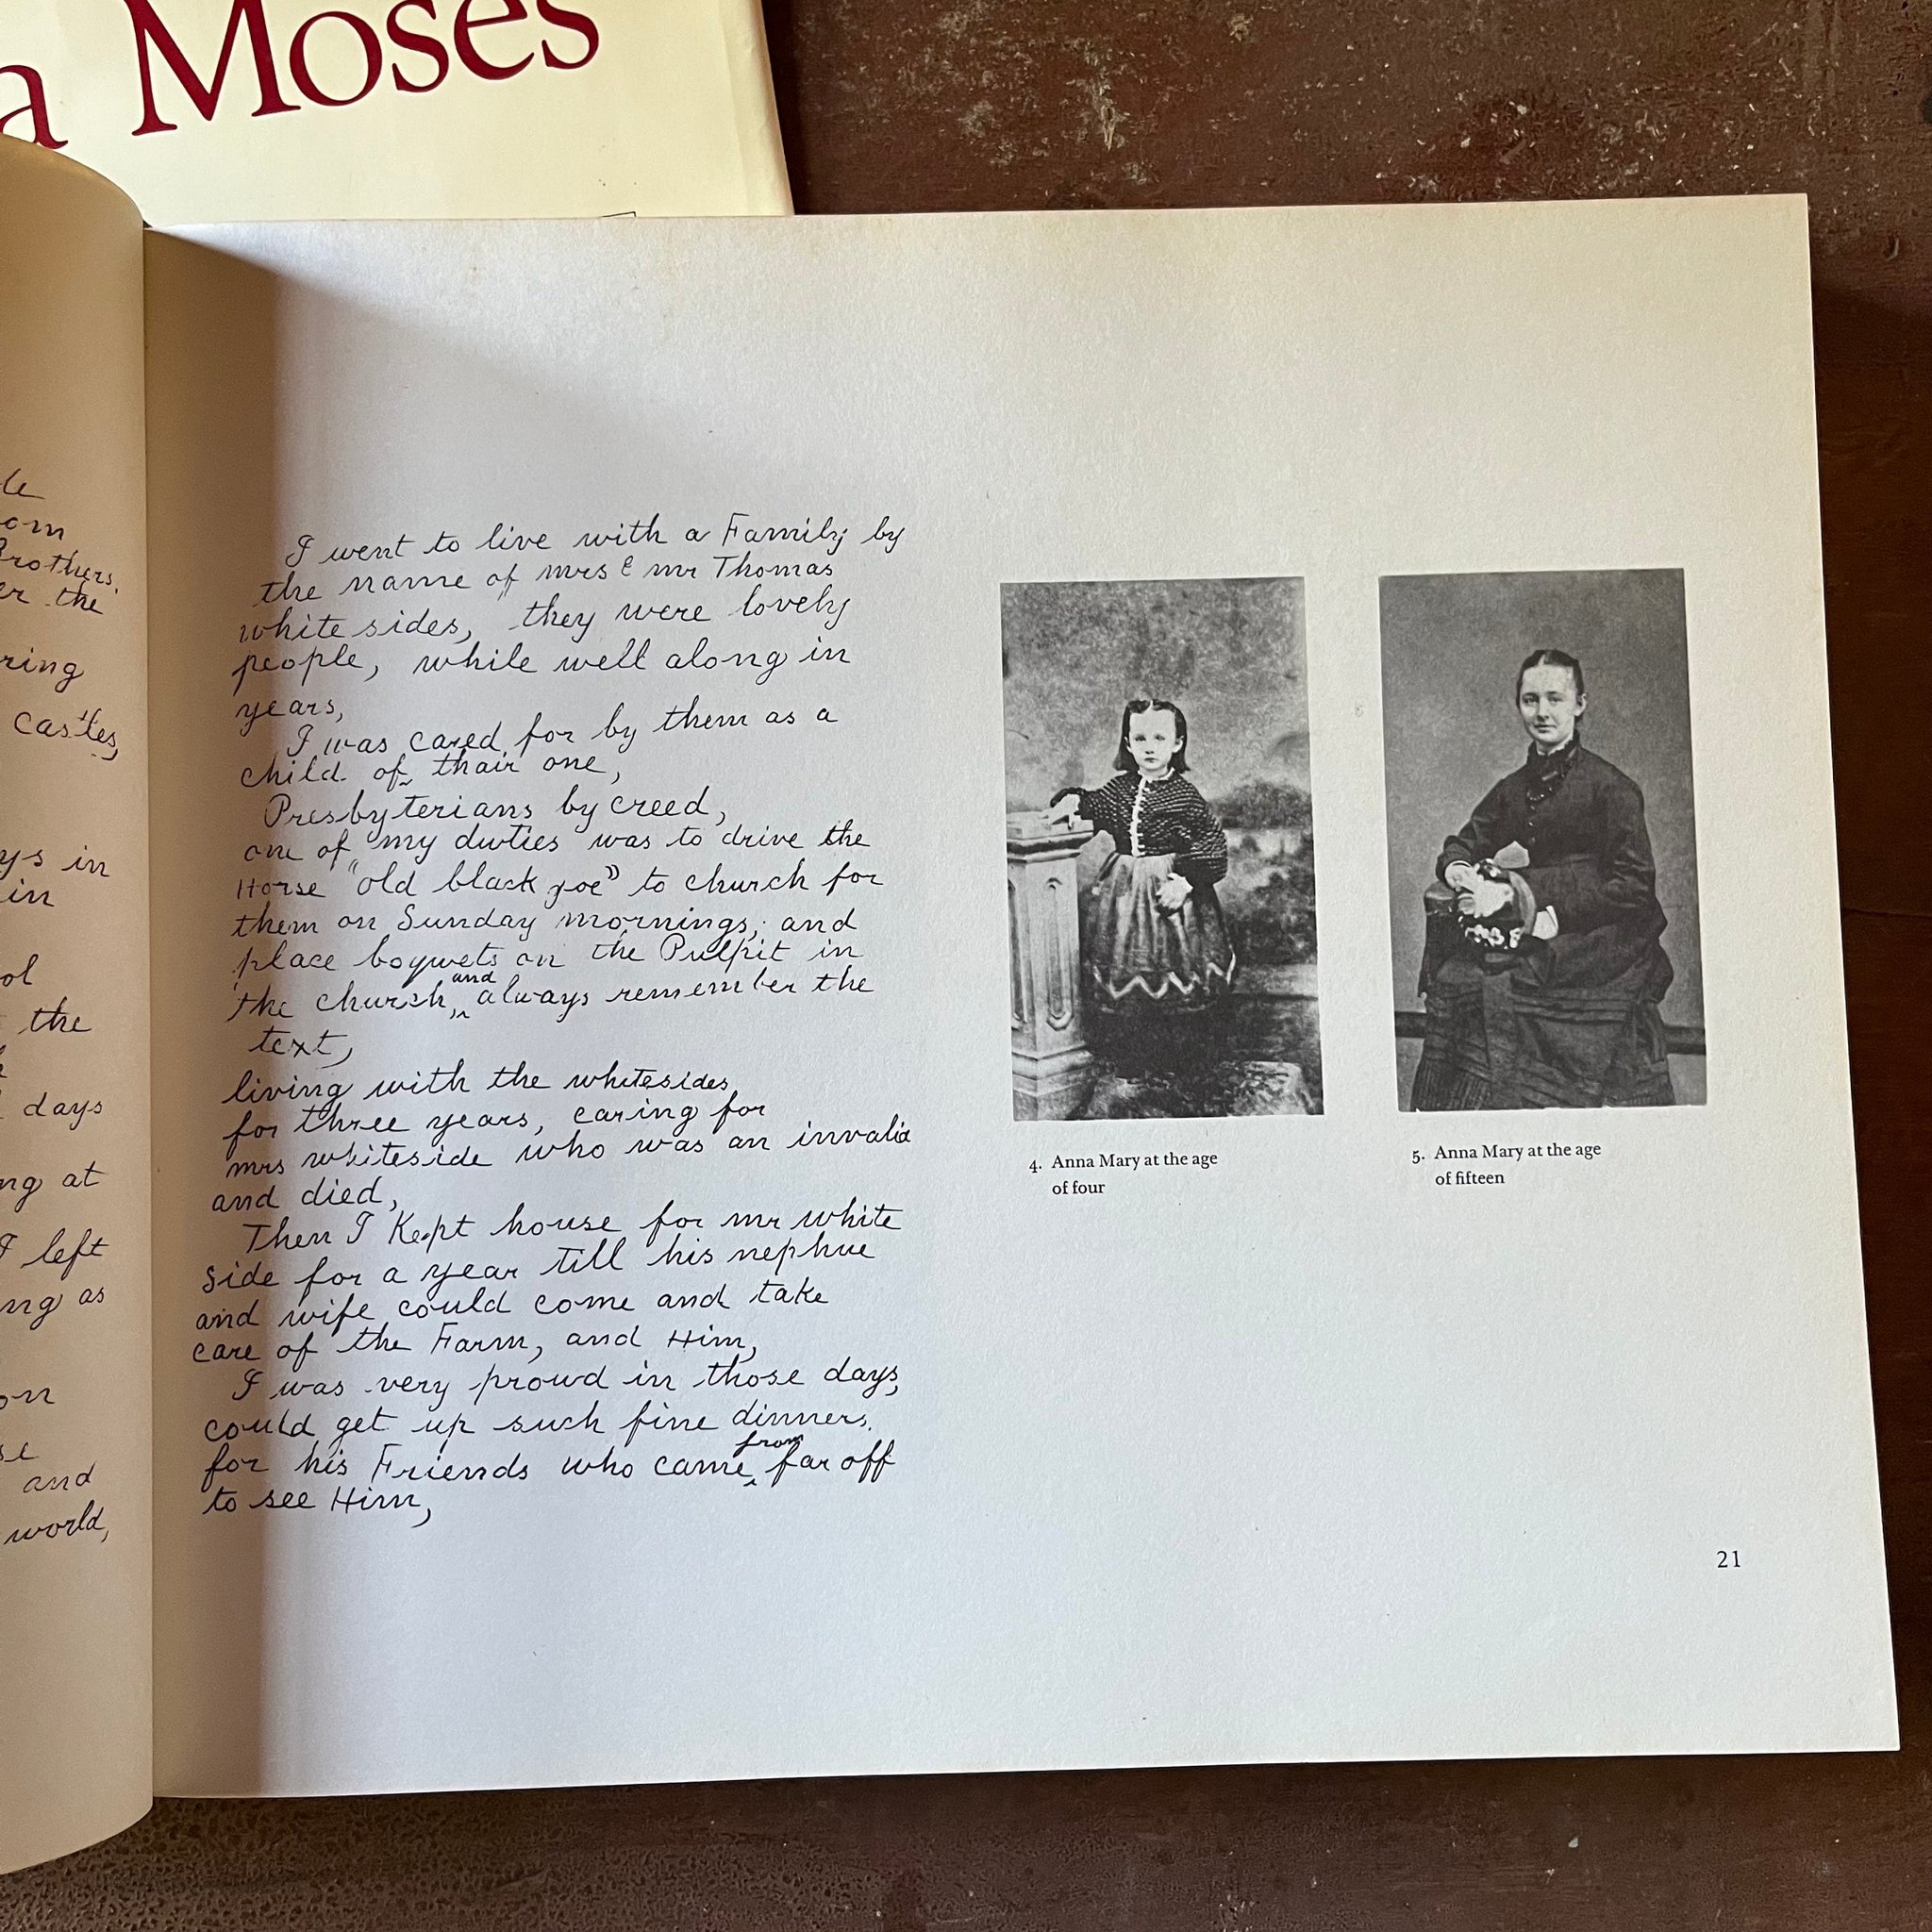 a Moses
le
om
Brothers.
er the
ring
castles,
ys in
in
ol
the
days
ng at
I left
ng as
on
se
and
world,
I went to live with a Family by
the name of mrs & mr Thomas
white sides, they were lovely
people, while well along in
years,
I was cared for by them as a
child of thair one,
Presbyterians by creed,
one of my duties was to drive the
Horse "old black joe" to church for
them on Sunday mornings, and
place boqwets on the Pulpit in
and
the church, ^ always remember the
text,
living with the whitesides
for three years, caring for
mrs whiteside who was an invalid
and died,
Then I Kept house for mr white
side for a year till his nephue
and wife could come and take
care of the Farm, and Him,
I was very proud in those days,
could get up such fine dinners,
from
for his Friends who came ^ far off
to see Him,
4. Anna Mary at the age
of four
5. Anna Mary at the age
of fifteen
21